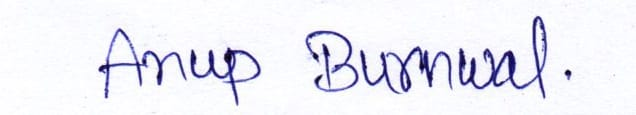 Anup Burnwal.